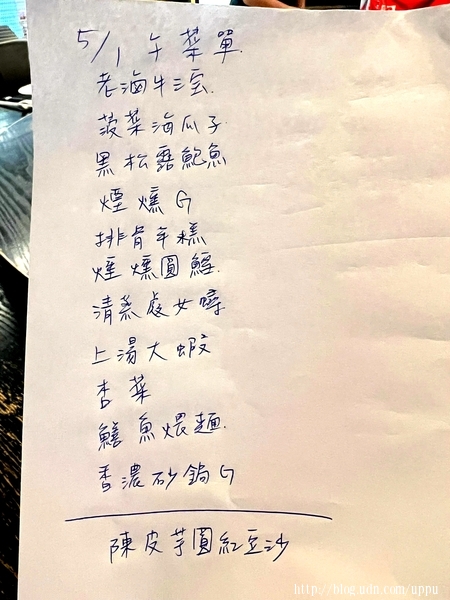 5/1 午菜單
老滷牛腱
菠菜海瓜子
黑松露鮑魚
煙燻G
排骨年糕
煙燻圓鱈
清蒸處女蟳
上湯大蝦
杏菜
鱔魚煨麵
香濃砂鍋G
陳皮芋圓紅豆沙
http://blog.udn.com/uppu